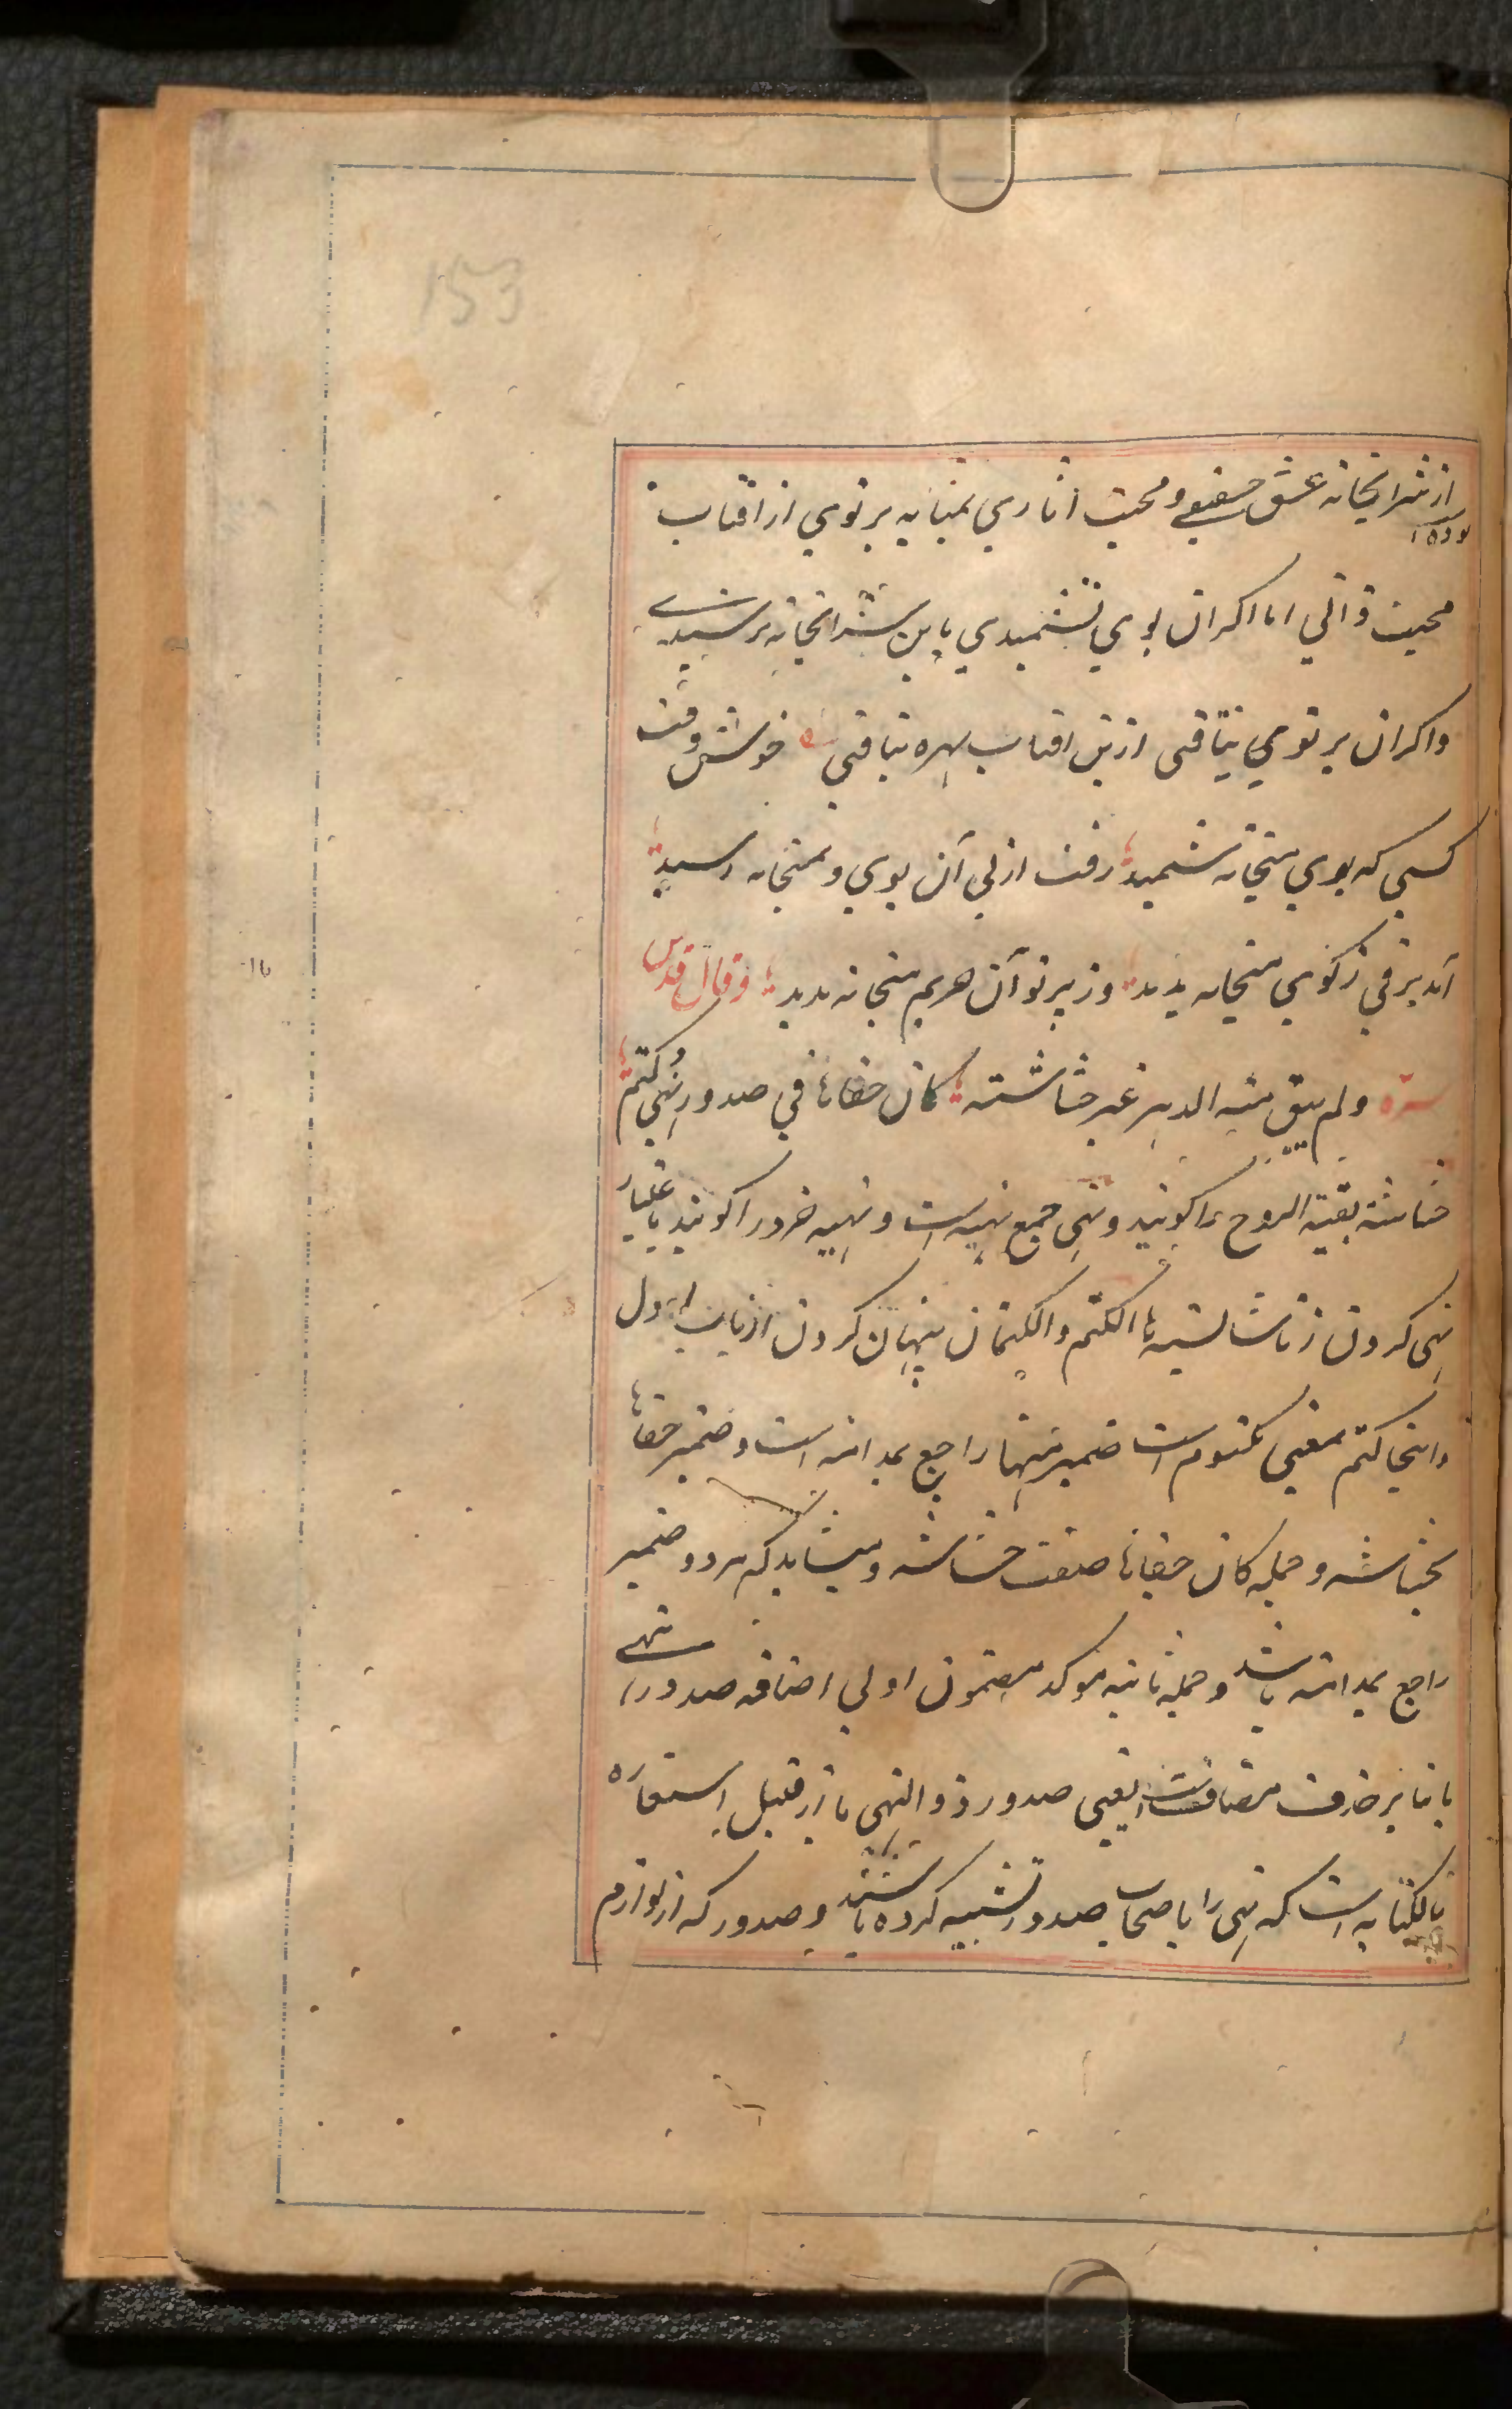 153
از شرابخانه عشق حقیقی و محبت اثاری بمثابه پرتوی از افتاب
بوده
محبت ذاتی اما اکر ان بوی نشمیدی باین شرابخانه نرسیدی
واکر ان پرتوی نیافتی ازین افتاب بهره نیافتی خوش وقت
کسی که بوی میخانه شمید رفت از پی آن بوی و بمیخانه رسید
آمد برقی ز کوی میخانه پدید وز پرتو آن حریم میخانه بدید و قال قدس
سره ولم یبق منها الدهر غیر حشاشته کان خفاها فی صدور النهی کتم
حشاشه بقیة الروح را کویند و نهی جمع نهیه است و نهیه خرد را کویند باعتبار
نهی کردن از ناشایسته ها الکتم والکتمان پنهان کردن از باب اول
واینجا کتم بمعنی مکتوم است ضمیر منها راجع بمدامه است و ضمیر خفاها
بحشاشه و جمله کان خفاها صفت حشاشه و میشاید که هر دو ضمیر
راجع بمدامه باشد و جمله ثانیه موکد مضمون اولی اضافه صدور نهی
یا بنابر حذف مضافست یعنی صدور ذوالنهی یا از قبیل استعاره
بالکنایه است که نهی را باصحاب صدور تشبیه کرده باشند و صدور که از لوازم